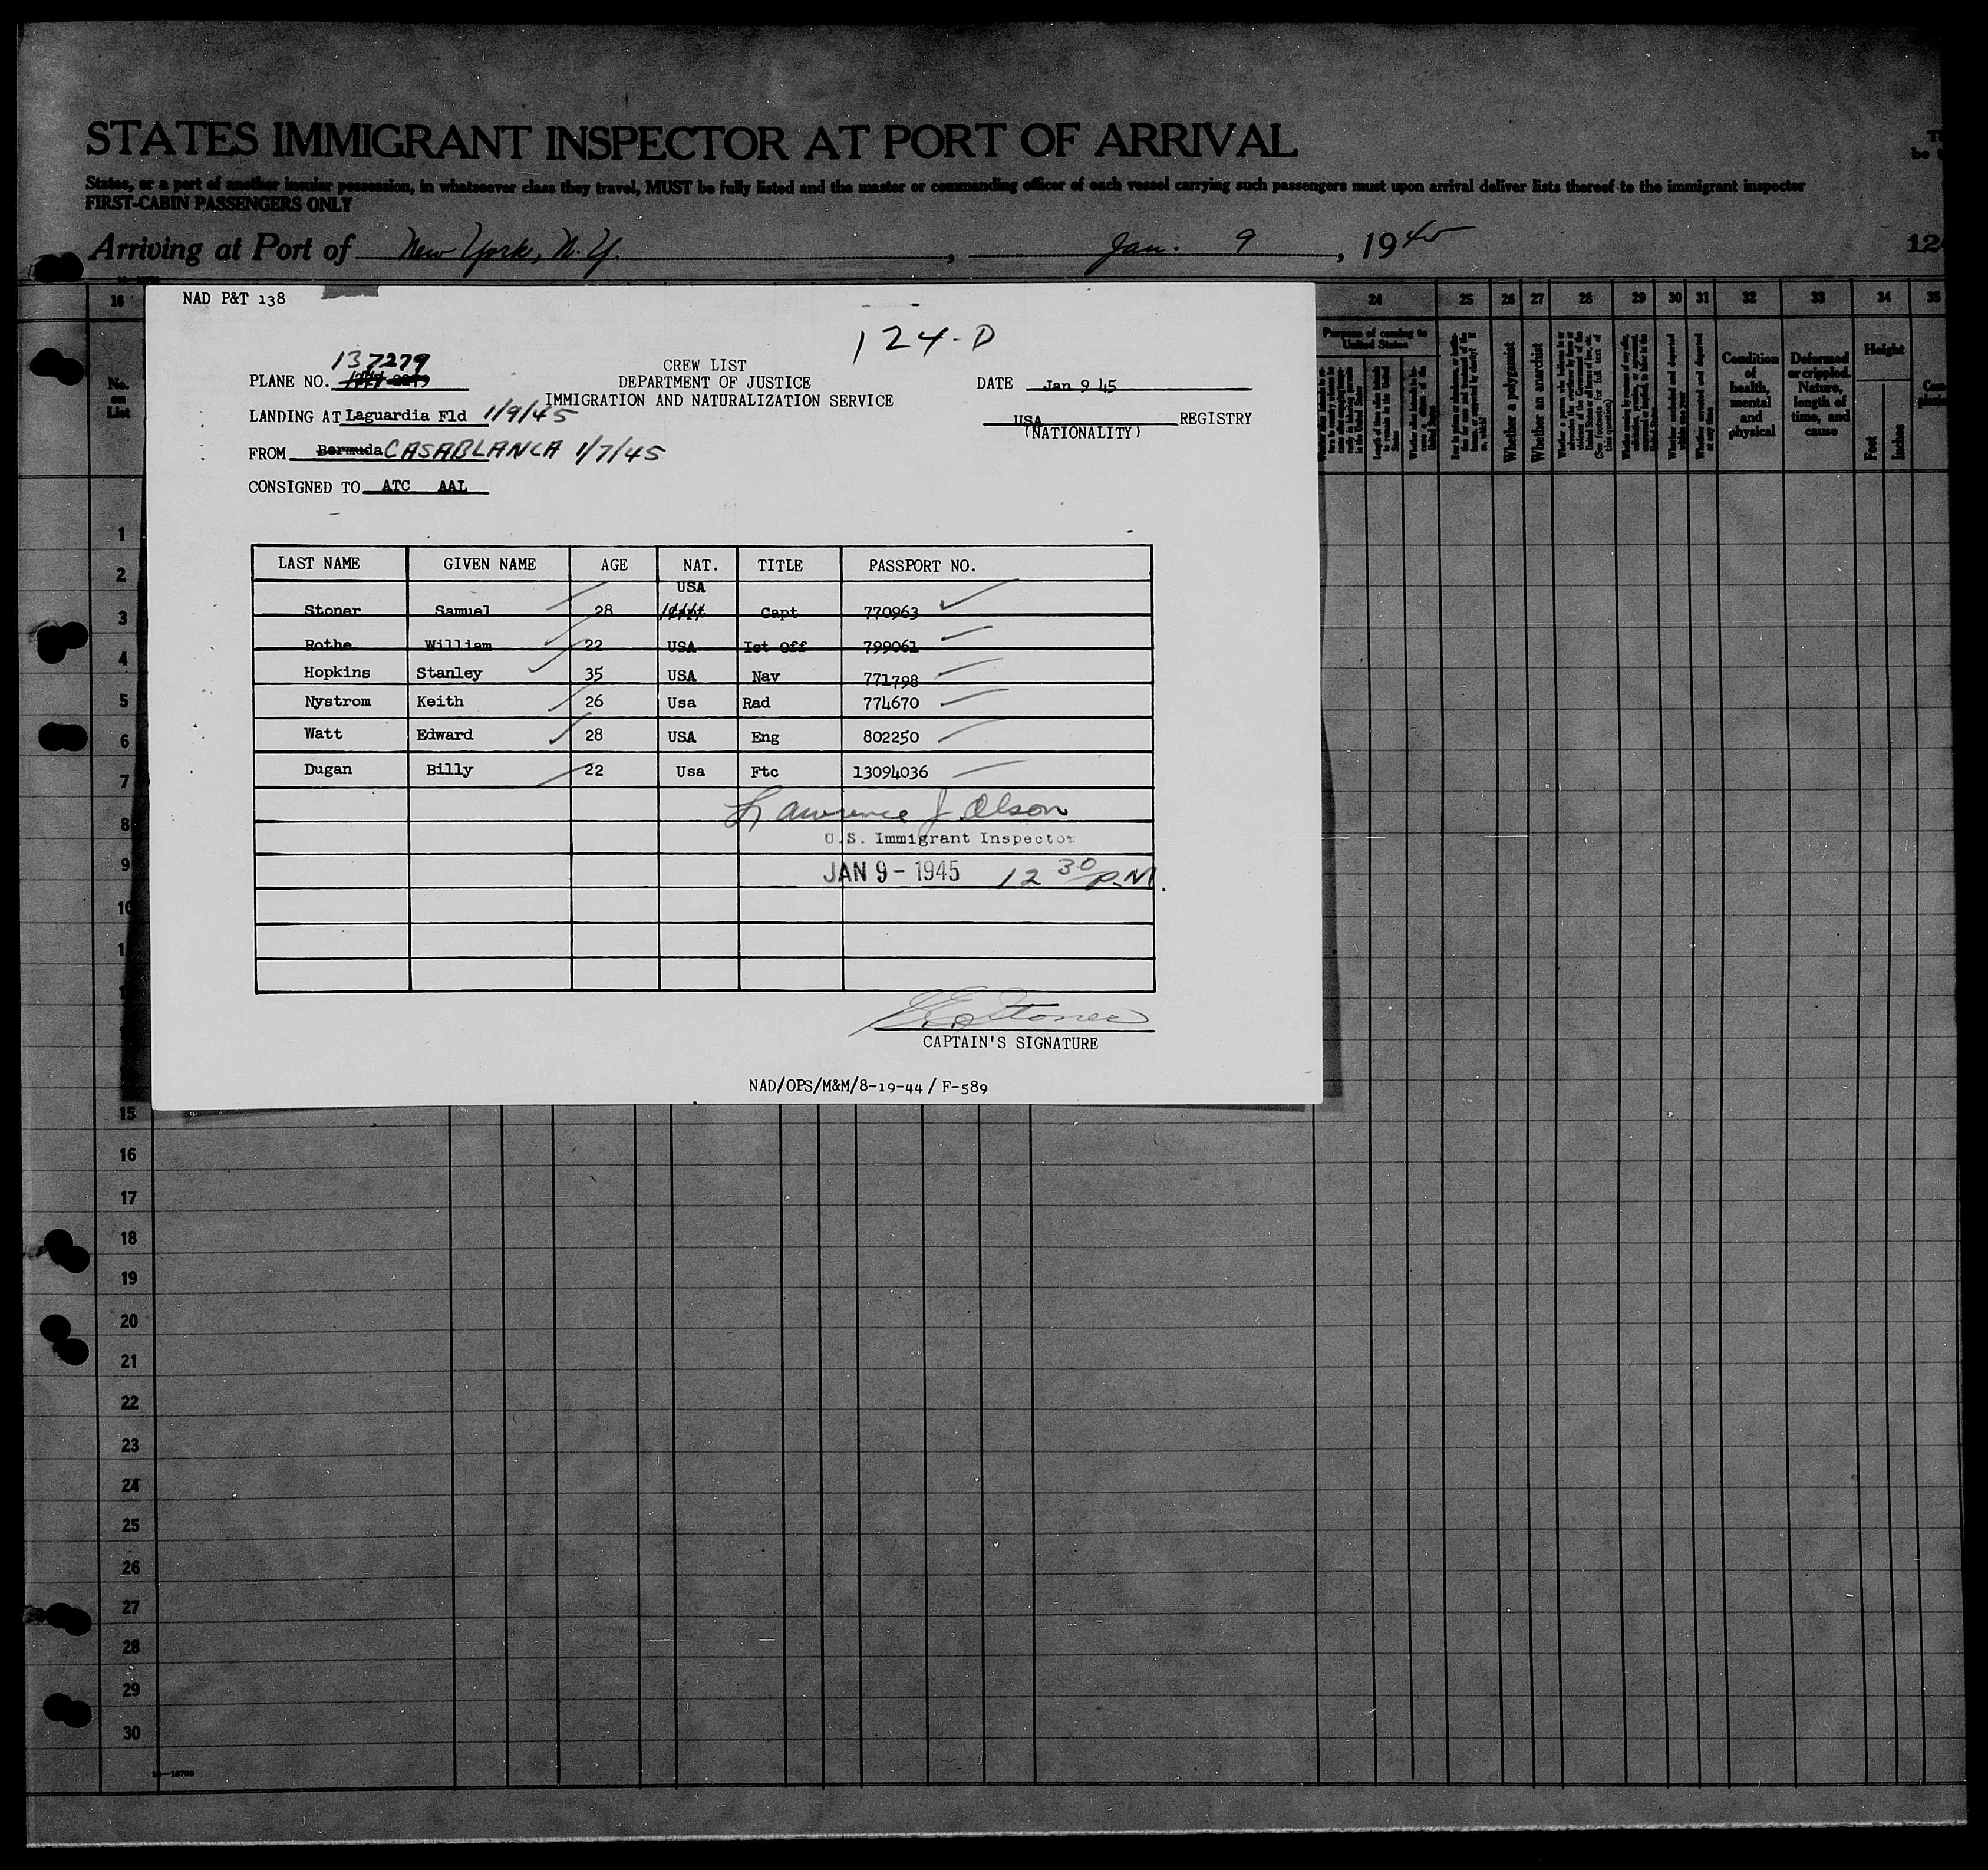 STATES IMMIGRANT INSPECTOR AT PORT OF ARRIVAL
States, or a port of another insular possession, in whatsoever class they travel, MUST be fully listed and the master or commanding officer of each vessel carrying such passengers must upon arrival deliver lists thereof to the immigrant inspector
FIRST-CABIN PASSENGERS ONLY
Arriving at Port of New York, N.Y., Jan. 9, 1945
16 24 25 26 27 28 29 30 31 32 33 34 35
No. on List
Purpose of coming to United States
Whether a polygamist
Whether an anarchist
Condition of health, mental and physical
Deformed or crippled. Nature, length of time, and cause
Height
Feet
Inches
NAD P&T 138
124-D
137279
PLANE NO.
CREW LIST
DEPARTMENT OF JUSTICE
IMMIGRATION AND NATURALIZATION SERVICE
DATE Jan 9 45
LANDING AT Laguardia Fld 1/9/45
USA REGISTRY
(NATIONALITY)
FROM Bermuda CASABLANCA 1/7/45
CONSIGNED TO ATC AAL
LAST NAME GIVEN NAME AGE NAT. TITLE PASSPORT NO.
USA
Stoner Samuel 28 Capt 770963
Rothe William 22 USA Ist Off 799061
Hopkins Stanley 35 USA Nav 771798
Nystrom Keith 26 Usa Rad 774670
Watt Edward 28 USA Eng 802250
Dugan Billy 22 Usa Ftc 13094036
Lawrence J. Olson
U.S. Immigrant Inspector
JAN 9 - 1945 12 30 P.M.
CAPTAIN'S SIGNATURE
NAD/OPS/M&M/8-19-44 / F-589
1
2
3
4
5
6
7
8
9
10
15
16
17
18
19
20
21
22
23
24
25
26
27
28
29
30